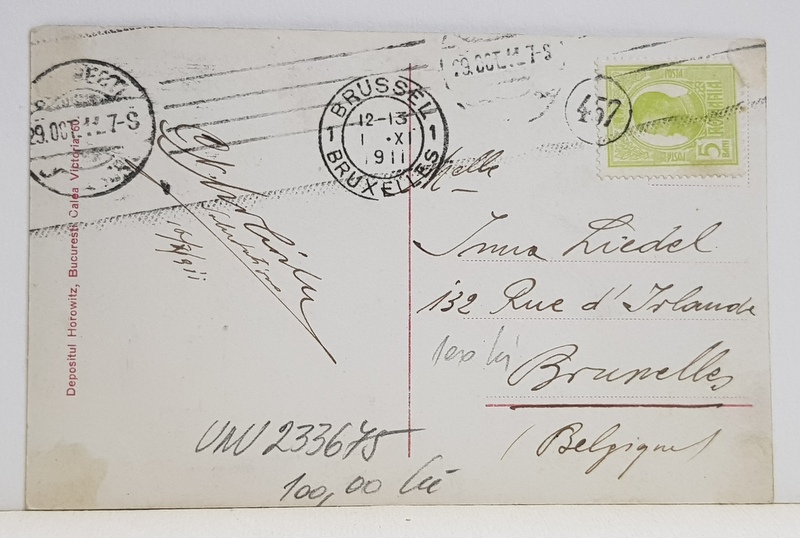 29.OCT.11.7-S
BRUSSEL
1 12-13 1
1 ·X
1911
BRUXELLES
29.OCT.11.7-S
457
POSTA
ROMANIA
5
BANI
Depositul Horowitz, Bucuresti Calea Victoria 60.
Melle
Irma Liedel
132 Rue d'Irlande
Bruxelles
(Belgique)
100 lei
UNU 233675
100,00 lei